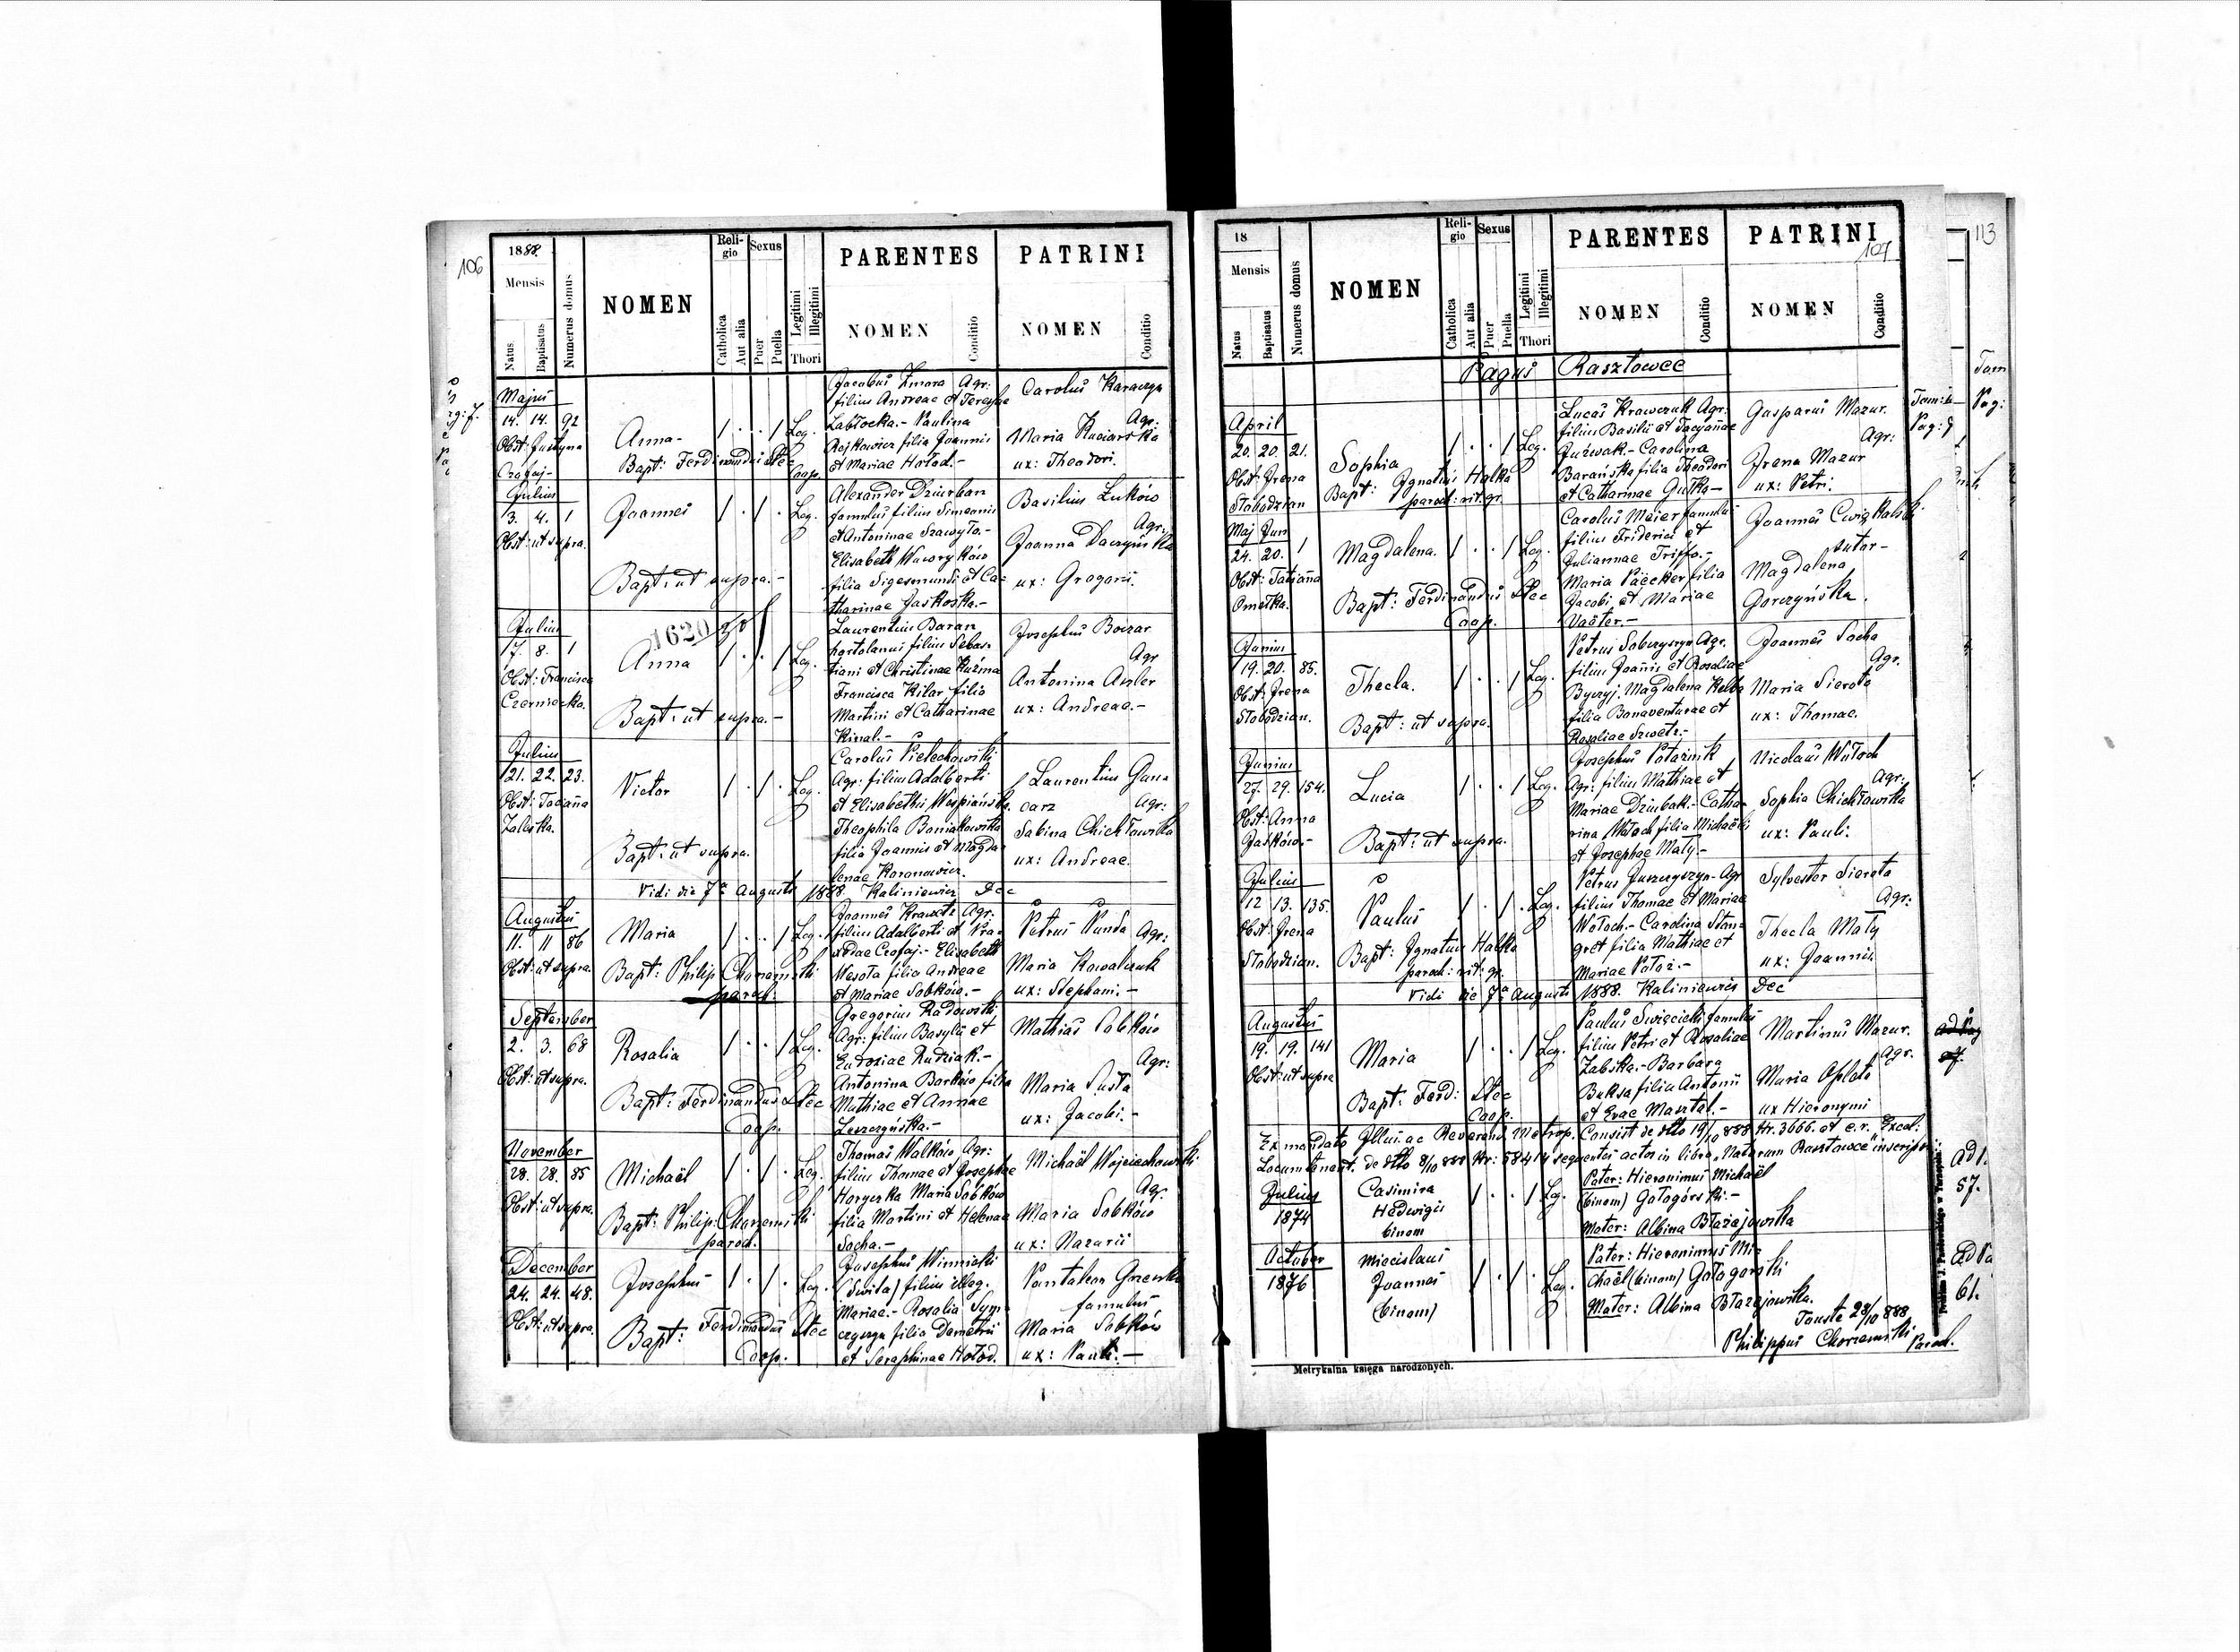 106
1888.
Mensis
Natus
Baptisatus
Numerus domus
NOMEN
Religio
Catholica
Aut alia
Sexus
Puer
Puella
Legitimi
Illegitimi
Thori
PARENTES
NOMEN
Conditio
PATRINI
NOMEN
Conditio
Majus
14. 14. 92
Obst: Justyna
Czafaj-
Anna-
Bapt: Ferdinandus Stec
Coop.
1 . . 1 Leg.
Jacobus Zmora Agr:
filius Andreae et Teresiae
Labtocka.- Paulina
Rojkowicz filia Joannis
et Mariae Hołod.-
Carolus Karaczyn
Agr:
Maria Kuciarska
ux: Theodori.
Julius
3. 4. 1
Obst: ut supra.
Joannes
Bapt: ut supra.-
1 . 1 . Leg.
Alexander Dziurban
famulus filius Simeonis
et Antoninae Szawyło.-
Elisabeth Wawryków
filia Sigesmundi et Ca-
tharinae Jaskoska.-
Basilius Luków
Agr:
Joanna Daczyńska
ux: Gregorii.
Julius
7. 8. 1
Obst: Francisca
Czerniecka.
1620
Anna
Bapt: ut supra.-
1 . . 1 Leg.
Laurentius Baran
hortolanus filius Sebas-
tiani et Christinae Kuźma
Francisca Kilar filia
Martini et Catharinae
Kinal.-
Josephus Boczar
Agr
Antonina Anler
ux: Andreae.-
Julius
21. 22. 23.
Obst: Taciańa
Zaleska.
Victor
Bapt: ut supra.
1 . 1 . Leg.
Carolus Pielechowski
Agr: filius Adalberti
et Elisabethis Wespiańska.
Theophila Boniakowska
filia Joannis et Magda-
lenae Karanowicz.
Laurentius Gan-
carz Agr:
Sabina Chichłowska
ux: Andreae.
Vidi die 7a Augusti 1888. Kaliniewicz Dec
Augustus
11. 11 86
Obst: ut supra.
Maria
Bapt: Philip Chorzemski
paroch:
1 . . 1 Leg.
Joannes Krawetz Agr:
filius Adalberti et Pra-
xediae Czafaj.- Elisabeth
Wesoła filia Andreae
et Mariae Sobków.-
Petrus Punda Agr:
Maria Kowalczuk
ux: Stephani.-
September
2. 3. 68
Obst: ut supra.
Rosalia
Bapt: Ferdinandus Stec
Coop.
1 . . 1 Leg.
Gregorius Radowski
Agr: filius Basylii et
Eudoxiae Rudziak.-
Antonina Borków filia
Mathiae et Annae
Leszczyńska.-
Mathias Sobków
Agr:
Maria Susła
ux: Jacobi.-
November
28. 28. 85
Obst: ut supra.
Michaël
Bapt: Philip: Chorzemski
paroch.
1 . 1 . Leg.
Thomas Walków Agr:
filius Thomae et Josephae
Horyczka Maria Sobków
filia Martini et Helenae
Socha.-
Michaël Wojciechowski
Agr.
Maria Sobków
ux: Nazarii
December
24. 24. 48.
Obst: ut supra.
Josephus
Bapt: Ferdinandus Stec
Coop.
1 . 1 . Leg.
Josephus Winnicki
(Swita) filius illeg.
Mariae.- Rosalia Sym-
czyszyn filia Demetrii
et Seraphinae Hołod.
Pantaleon
famulus
Maria Sobków
ux: Pauli.-
18
Mensis
Natus
Baptisatus
Numerus domus
NOMEN
Religio
Catholica
Aut alia
Sexus
Puer
Puella
Legitimi
Illegitimi
Thori
PARENTES
NOMEN
Conditio
PATRINI
107
NOMEN
Conditio
113
Pagus Rasztowce
April
20. 20. 21.
Obst: Irena
Słobodzian
Sophia
Bapt: Ignatius Halka
paroch: rit: gr.
1 . . 1 Leg.
Lucas Krawczuk Agr:
filius Basilii et Tacyańae
Juźwak.- Carolina
Barańska filia Theodori
et Catharinae Gutka-
Gasparus Mazur.
Agr:
Irena Mazur
ux: Petri.
Maj Jun
24. 20. 1
Obst: Tatiańa
Ometka.
Magdalena.
Bapt: Ferdinandus Stec
Coop.
1 . . 1 Leg.
Carolus Meier famulus
filius Friderici et
Juliannae Triffo.-
Maria Päecker filia
Jacobi et Mariae
Vaster.-
Joannes Ćwiąkalski
Sutor-
Magdalena
Gorczyńska.
Junius
19. 20. 85.
Obst: Irena
Słobodzian.
Thecla.
Bapt: ut supra.
1 . . 1 Leg.
Petrus Sobczyszyn Agr.
filius Joańis et Rosaliae
Byczyj. Magdalena Kelbe
filia Bonaventurae et
Rosaliae Szwetz.-
Joannes Socha
Agr.
Maria Sierota
ux: Thomae.
Junius
27. 29. 154.
Obst: Anna
Jasków.-
Lucia
Bapt: ut supra.
1 . . 1 Leg.
Josephus Potaźnik
Agr: filius Mathiae et
Mariae Dziubak.- Catha-
rina Wołoch filia Michaëli
et Josephae Mały.-
Nicolaus Wołoch
Agr:
Sophia Chichłowska
ux: Pauli.
Julius
12 13. 135.
Obst: Irena
Słobodzian.
Paulus
Bapt: Ignatius Halka
paroch: rit: gr.
1 . 1 . Leg.
Petrus Juszczyszyn- Agr
filius Thomae et Mariae
Wołoch.- Carolina Stan-
gret filia Mathiae et
Mariae Potoz.-
Sylvester Sierota
Agr:
Thecla Mały
ux: Joannis
Vidi die 7a Augusti 1888. Kaliniewicz Dec
Augustus
19. 19. 141
Obst: ut supra
Maria
Bapt: Ferd: Stec
Coop.
1 . . 1 Leg.
Paulus Swięcicki famulus
filius Petri et Rosaliae
Zabska.- Barbara
Buksa filia Antonii
et Evae Masztal.-
Martinus Mazur.
Agr.
Maria Oplata
ux Hieronymi
Ex mandato Illus. ac Reverend. Metrop. Consist de dtto 19/10 888 Nr. 3666. et c. r. Excel:
Locumtenent. de dtto 8/10 888 Nr: 58414 sequentes actor in libro „Natorum Rasztowce" inscripsi:
Julius
1874
Casimira
Hedwigis
binom
1 . . 1 Leg.
Pater: Hieronimus Michaël
(binom) Gołogórski.-
Mater: Albina Błażejowska
ad 1.
57.
October
1876
Miecislaus
Joannes
(binom)
1 . 1 . Leg.
Pater: Hieronimus Mi-
chaël (binom) Gołogorski
Mater: Albina Błażejowska.
61.
Touste 28/10 888
Philippus Chorzemski
Paroch.
Metrykalna księga narodzonych.